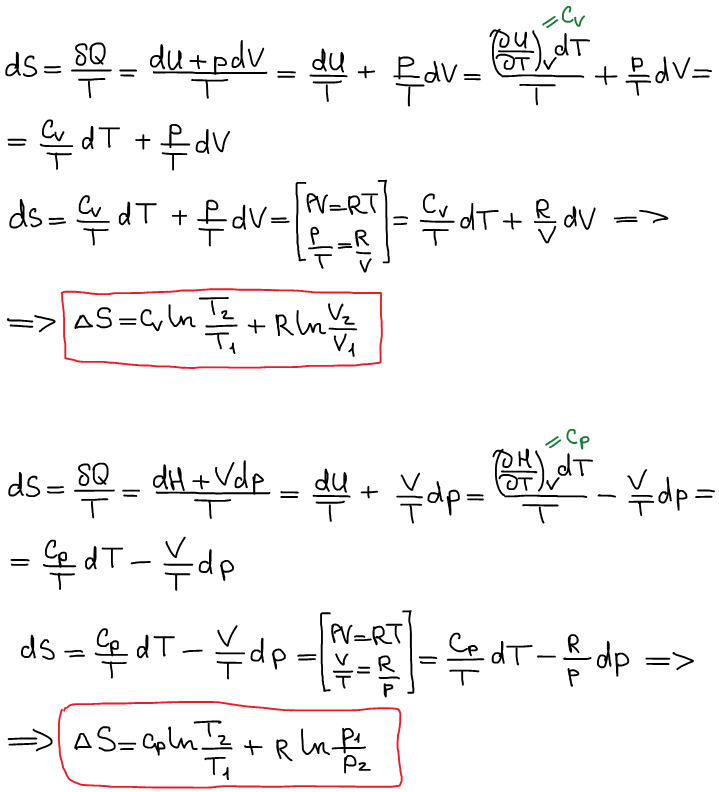 = Cv
dS = δQ/T = (dU + pdV)/T = dU/T + p/T dV = (∂U/∂T)v dT/T + p/T dV =
= Cv/T dT + p/T dV
dS = Cv/T dT + p/T dV = [PV=RT P/T=R/V] = Cv/T dT + R/V dV =>
=> ΔS = Cv ln T2/T1 + R ln V2/V1
= Cp
dS = δQ/T = (dH + Vdp)/T = dU/T + V/T dp = (∂H/∂T)v dT/T − V/T dp =
= Cp/T dT − V/T dp
dS = Cp/T dT − V/T dp = [PV=RT V/T=R/P] = Cp/T dT − R/P dp =>
=> ΔS = Cp ln T2/T1 + R ln P1/P2